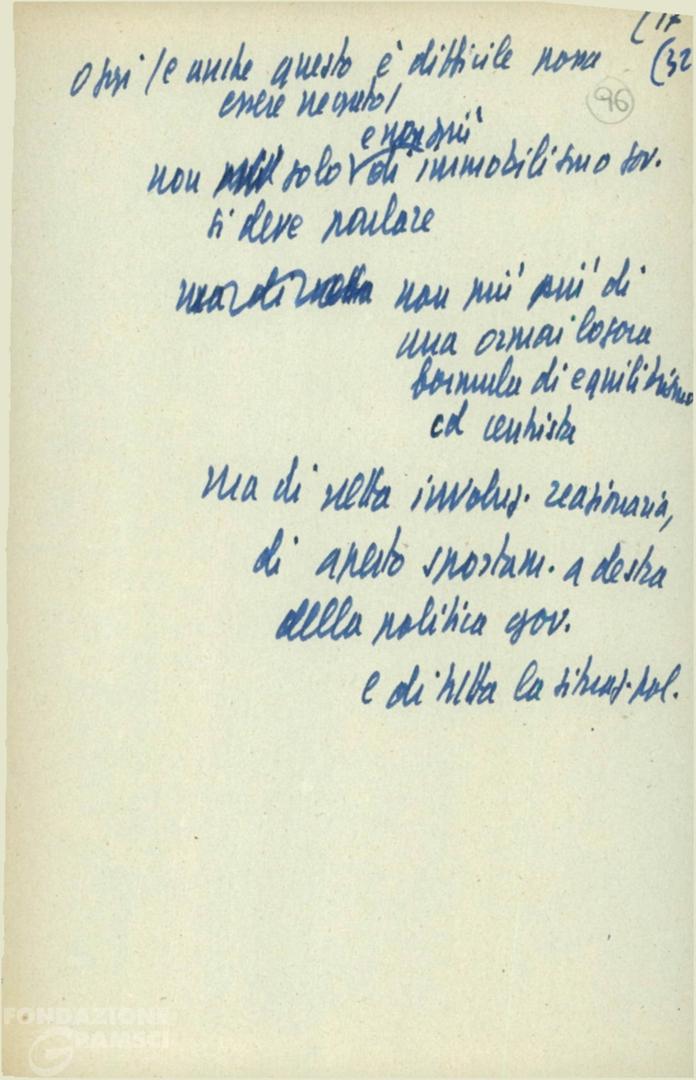 (17
(32
96
Oggi (e anche questo è difficile possa
essere negato)
e non più
non solo di immobilismo gov.
si deve parlare
non più più di
una ormai logora
formula di equilibrismo
cd centrista
ma di netta involuz. reazionaria,
di aperto spostam. a destra
della politica gov.
e di tutta la situaz. pol.
FONDAZIONE
GRAMSCI